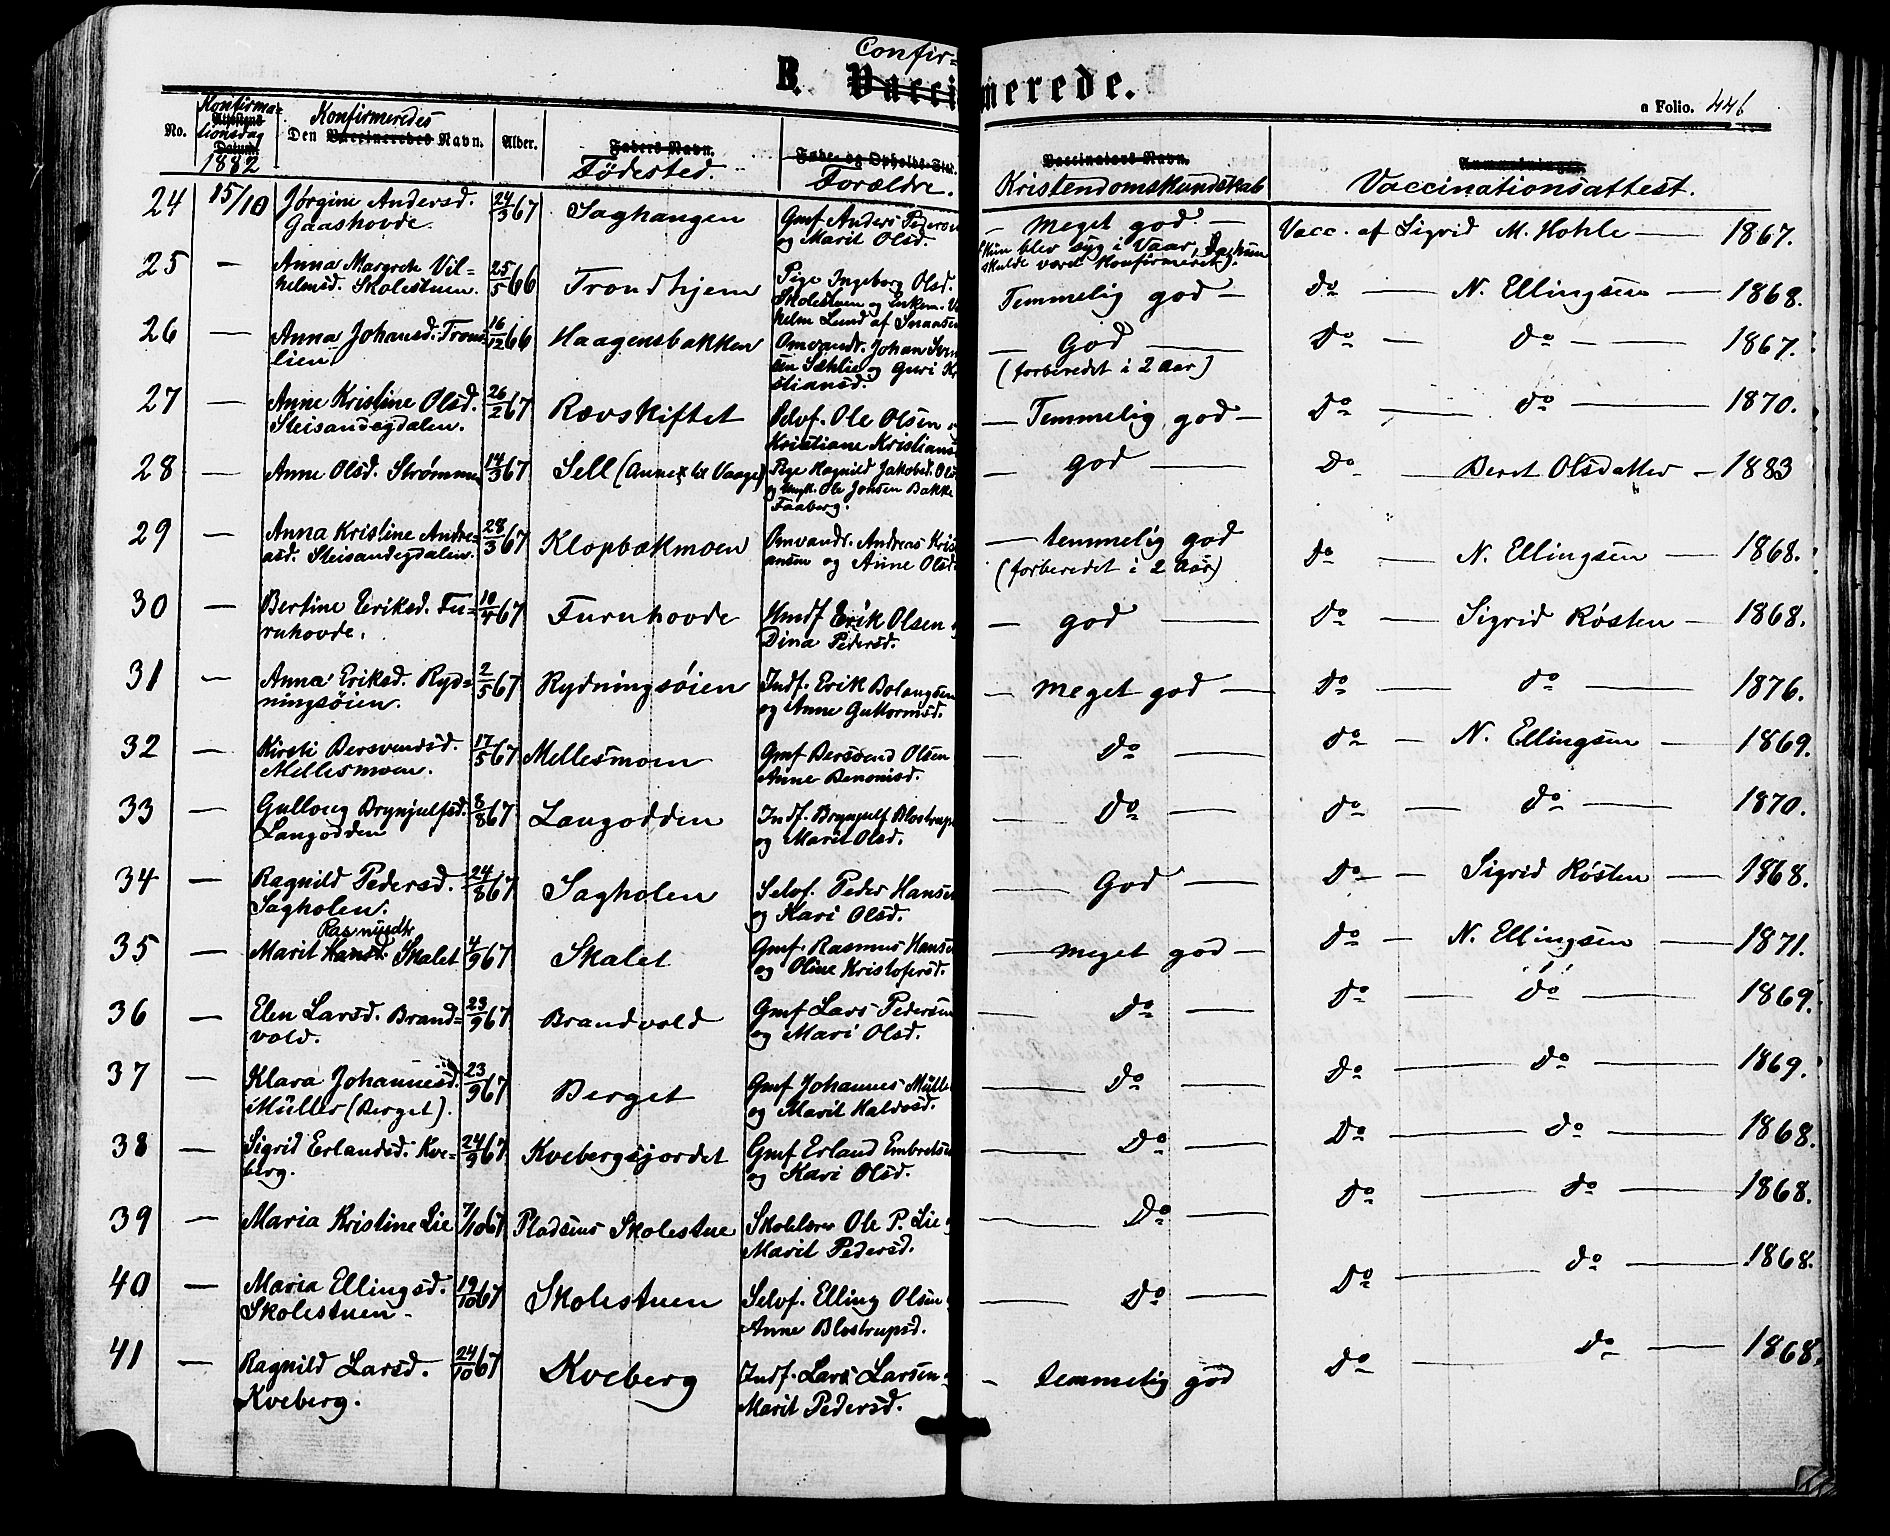 Confir-
B. Vaccinerede.
a Folio. 446
No. Konfirmationsdag Datum 1882 Den Konfirmeredes Vaccineredes Navn. Alder. Faders Navn. Fødested. Forældre. Vaccinators Navn. Kristendomskundskab Anmærkninger. Vaccinationsattest.
24 15/10 Jørgine Andersd. 24/3 67 Saghaugen Gmf Anders Pederse — meget god — Vacc. af Sigrid M. Hohle — 1867.
Gaashovde. og Marit Olsd. (Hun blev syg i Vaar, da hun
skulde været konfirmeret).
25 — Anna Margrete Vil- 25/5 66 Trondhjem Pige Ingeborg Olsd. Temmelig god — Do — N. Ellingsen — 1868.
helmsd. Skolestuen. Skolestuen og Enkem. Vil
helm Lund af Snaasen
26 — Anna Johansd. Trons- 16/12 66 Haagensbakken Omvandr. Johan Sven — God — Do — Do — 1867.
lien. sen Sæhlie og Guri Kr (forberedet i 2 Aar)
stiansd.
27 — Anne Kristine Olsd. 26/2 67 Rævskiftet Selvf. Ole Olsen — Temmelig god — Do — do — 1870.
Steisandegdalen. Kristiane Kristians
28 — Anne Olsd. Strømme 14/3 67 Sell (Annex til Vaage) Pige Ragnild Jakobsd. Ols — god — Do — Beret Olsdatter — 1883
og Ungk. Ole Jonsen Bakke
Faaberg.
29 — Anna Kristine Andre- 28/3 67 Klopbækmoen Omvandr. Andreas Kris — temmelig god Do — N. Ellingsen — 1868.
asd. Steisandegdalen. ansen og Anne Olsd. (forberedet i 2 Aar)
30 — Bertine Eriksd. Fu- 10/4 67 Furuhovde Hmdf Erik Olsen — god — Do — Sigrid Røsten — 1868.
ruhovde. Dina Pedersd.
31 — Anna Eriksd. Ryd- 2/5 67 Rydningsøien Indf. Erik Bolangsen — meget god — Do — do — 1876.
ningsøien. og Anne Guttormsd.
32 — Kirsti Bersvendsd. 17/5 67 Mellesmoen Gmf Bersvend Olsen — Do — Do — N. Ellingsen — 1869.
Mellesmoen. Anne Benomisd.
33 — Gulloug Brynjulfsd. 8/8 67 Langodden Indf. Brynjulf Blostrups — Do — Do — do — 1870.
Langodden og Marit Olsd.
34 — Ragnild Pedersd. 24/8 67 Sagholen Selvf. Peder Hansen — God — Do — Sigrid Røsten — 1868.
Sagholen. og Kari Olsd.
Rasmusdtr
35 — Marit Hansd. Skalet 4/9 67 Skalet Gmf. Rasmus Hanse — meget god — Do — N. Ellingsen — 1871.
og Oline Kristofersd.
36 — Elen Larsd. Brand- 23/9 67 Brandvold Gmf Lars Pedersen — Do — Do — Do — 1869.
vold. og Mari Olsd.
37 — Klara Johannesd. 23/9 67 Berget Gmf Johannes Mülle — Do — Do — do — 1869.
Müller (Berget). og Marit Halvosd.
38 — Sigrid Erlandsd. Kve- 24/9 67 Kvebergsjordet Gmf Erland Embretse — Do — Do — do — 1868.
berg. og Kari Olsd.
39 — Maria Kristine Lie 7/10 67 Pladsens Skolestue Skolelærer Ole P. Lie — Do — Do — do — 1868.
Marit Pedersd.
40 — Maria Ellingsd. 19/10 67 Skolestuen Selvf. Elling Olsen — Do — Do — do — 1868.
Skolestuen. Anne Blostrupsd.
41 — Ragnild Larsd. 24/10 67 Kveberg Indf. Lars Larsen — temmelig god Do — do — 1868.
Kveberg. Marit Pedersd.